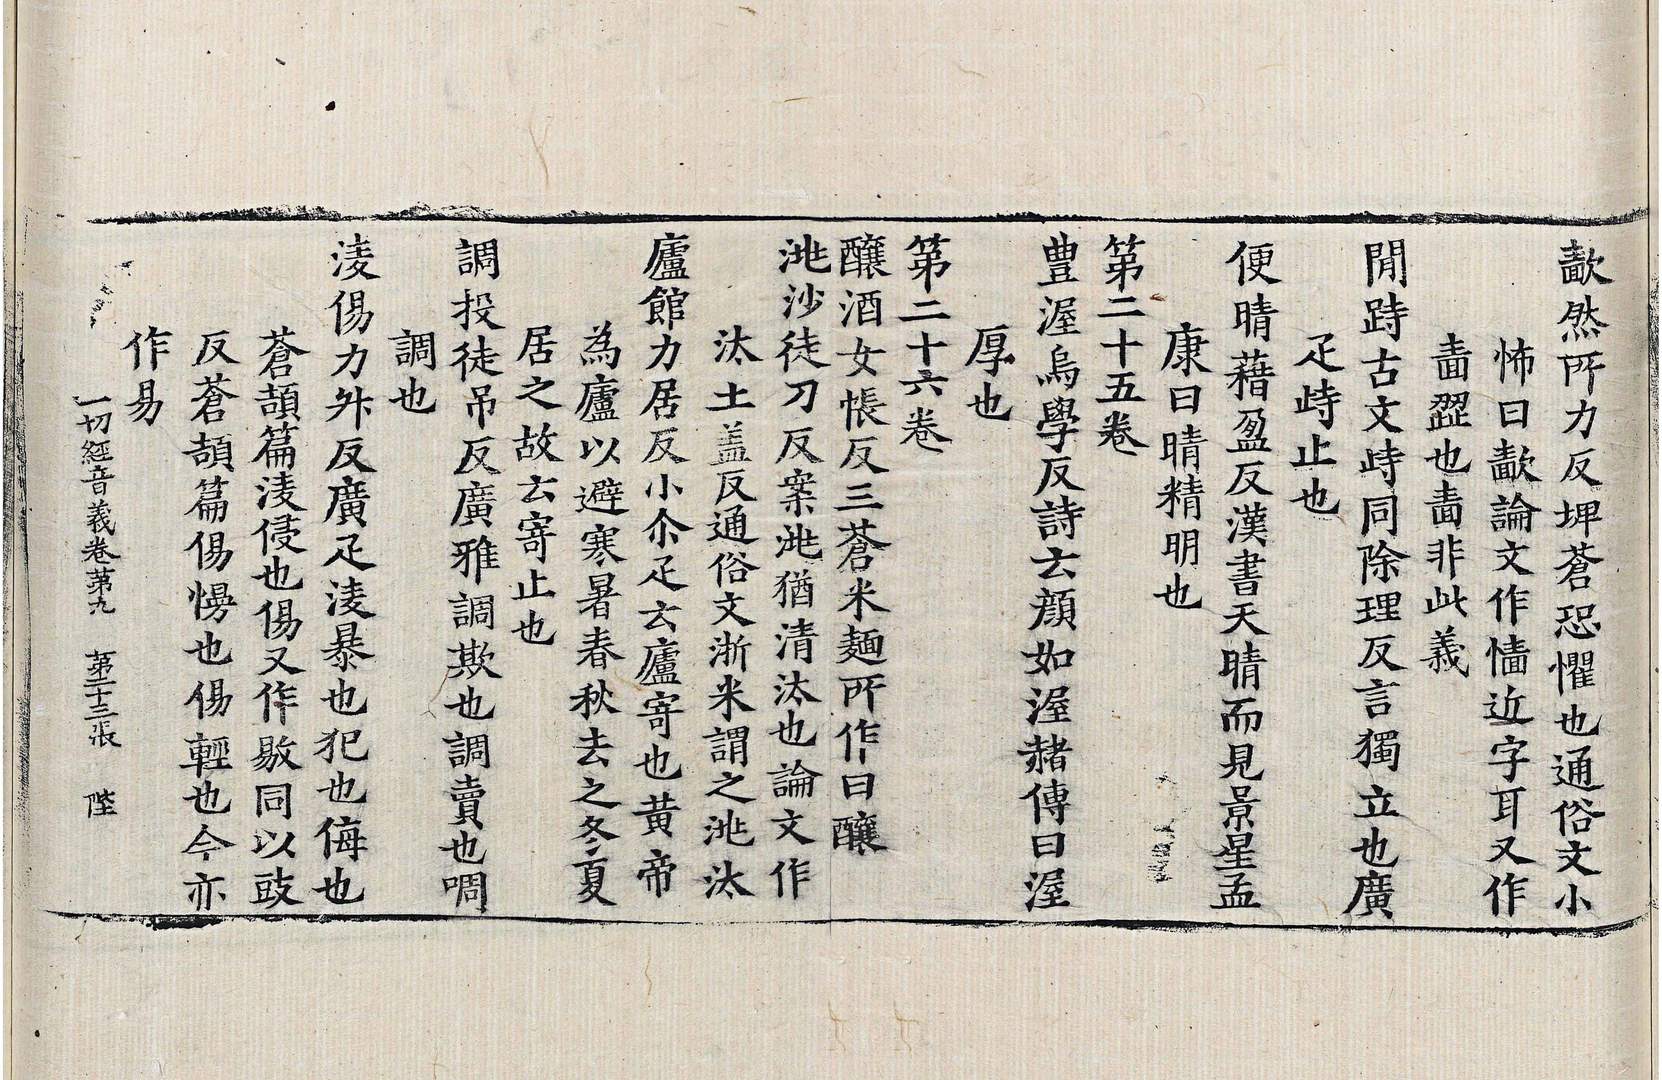 歗然所力反埤蒼恐懼也通俗文小
怖曰歗論文作懎近字耳又作
嗇澀也嗇非此義
閒跱古文峙同除理反言獨立也廣
疋峙止也
便晴藉盈反漢書天晴而見景星孟
康曰晴精明也
第二十五卷
豊渥烏學反詩云顔如渥赭傳曰渥
厚也
第二十六卷
釀酒女帳反三蒼米麺所作曰釀
洮沙徒刀反案洮猶清汰也論文作
汰土盖反通俗文淅米謂之洮汰
廬館力居反小尒疋云廬寄也黄帝
為廬以避寒暑春秋去之冬夏
居之故云寄止也
調投徒吊反廣雅調欺也調賣也啁
調也
淩傷力升反廣疋淩暴也犯也侮也
蒼頡篇淩侵也傷又作敭同以豉
反蒼頡篇傷慢也傷輕也今亦
作易
一切經音義卷第九 第二十三張 陛